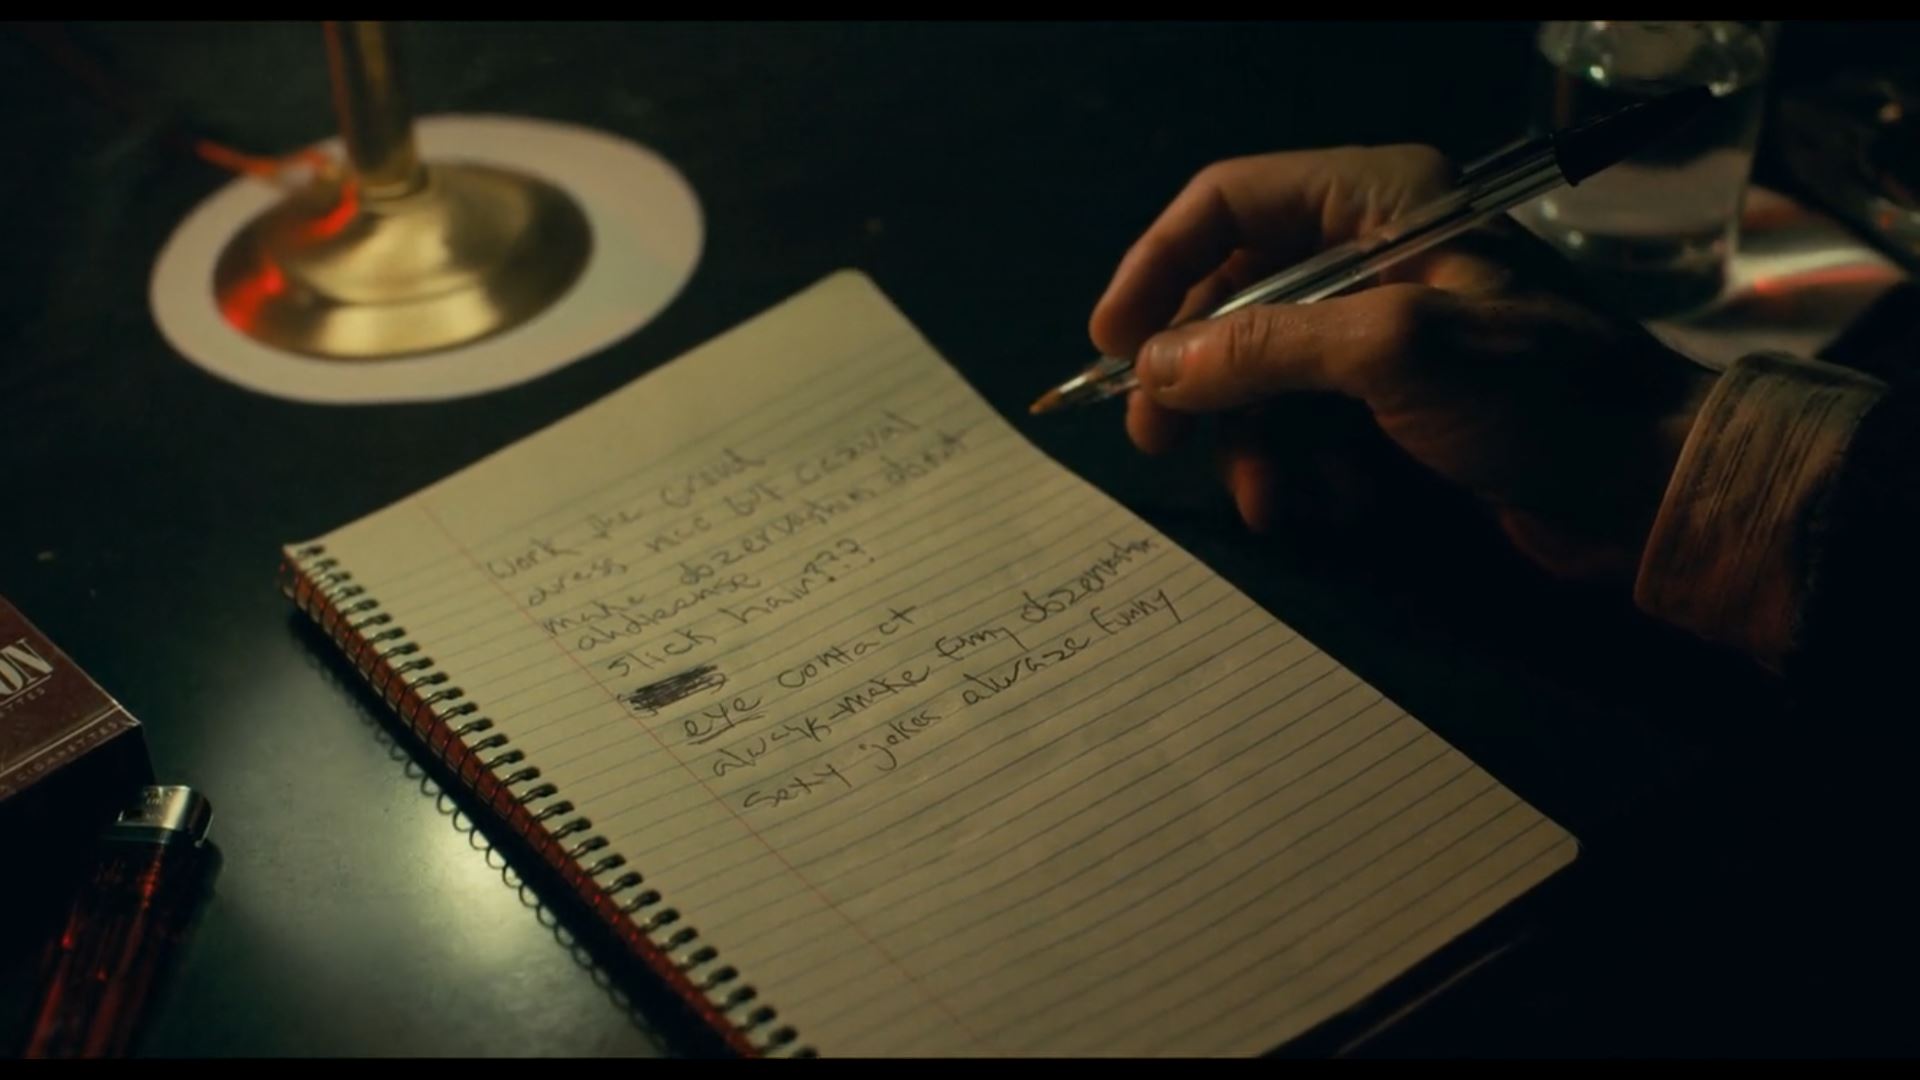 work the croud
dress nice but casual
make obzervashin donst
andisense
slick hair???
eye contact
always-make funny obzervashin
sexy jokes alwaze funny
ON
CIGARETTES